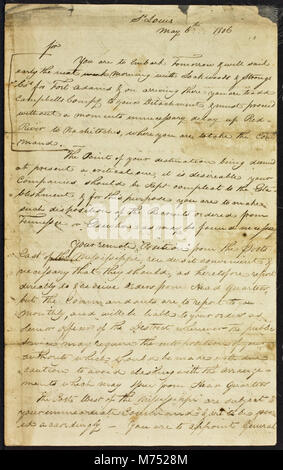 St. Louis
May 6th 1806
Sir
You are to embark Tomorrow & will sail
early the next Morning with Lockwood & Strong
Co's for Fort Adams & on arriving there you are to add
Campbells Compy to your Detachment & must proceed
without a moments unnecessary delay up Red
River to Nachitoches, where you are to take the Com
mand.
The Point of your destination being deemed
at present a critical one, it is desireable your
Companies should be kept compleat to the Esta
blishment, & for this purpose you are to make
such disposition of the Recruits ordered from
Tennessee or Cumberland as may be found necessary
Your remote situation from the Posts
East of the Mississippi, renders it convenient &
necessary that they should, as heretofore report
directly to & receive Orders from Head Quarters,
but the Commandants are to report to you
monthly, and will be liable to your orders as
senior officer of the District whenever the public
service may require the interposition of your
authority which should be made with due
caution to avoid clashing with the arrange
ments which may flow from Head Quarters
The Posts West of the Mississippi are subject to
your immediate Command & will be
accordingly — You are to appoint General
alamy
M7528M